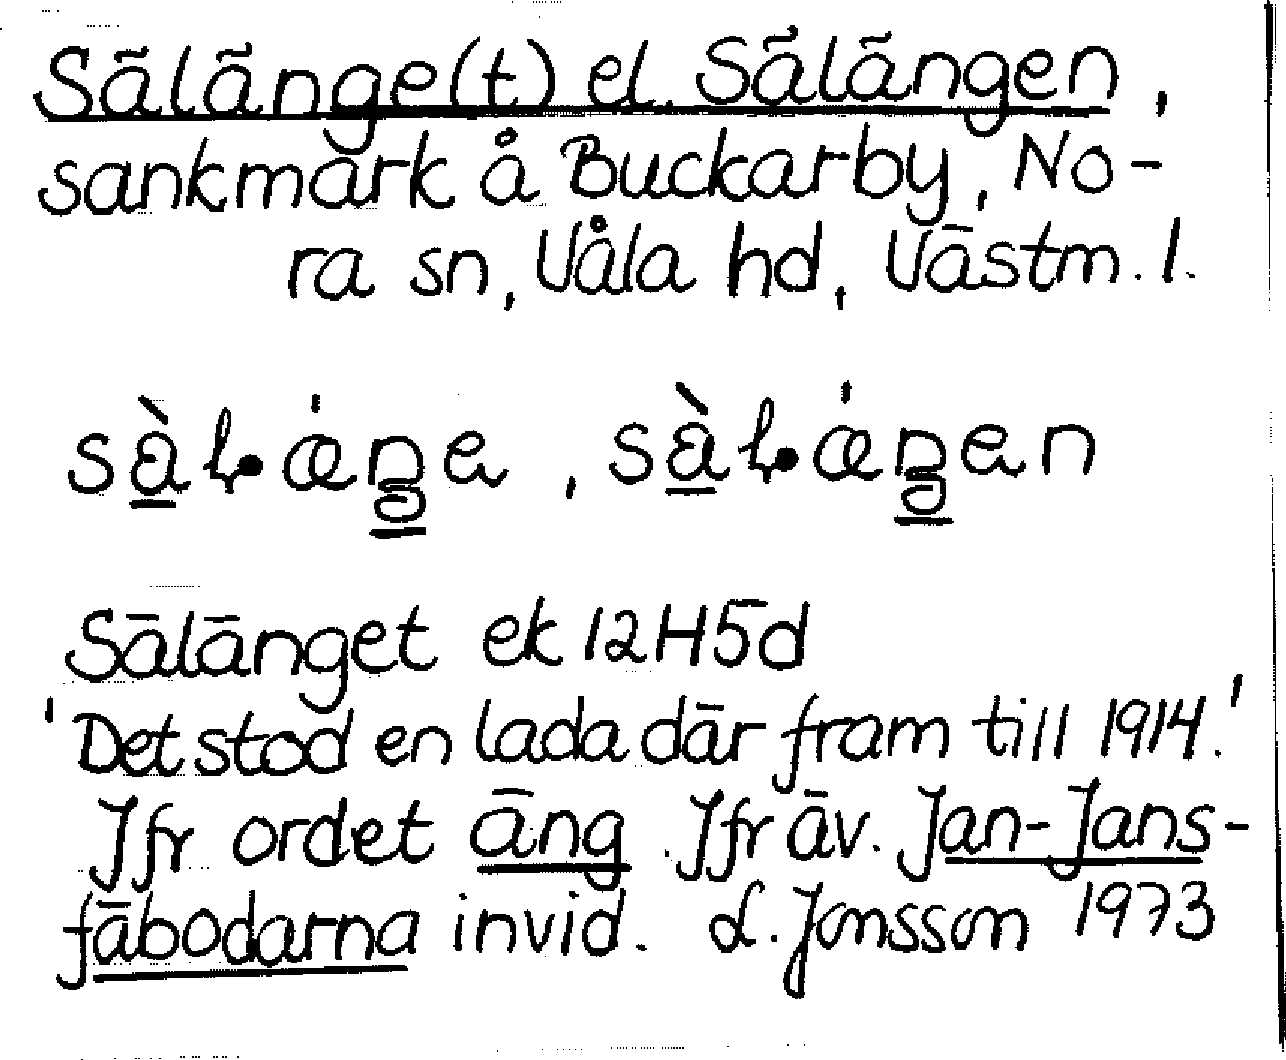 Sälänge(t) el. Sälängen,
sankmark å Buckarby, No-
ra sn, Våla hd, Västm. l.
Sälänget ek 12H5d
'Det stod en lada där fram till 1914.'
Jfr ordet äng. Jfr äv. Jan-Jans-
fäbodarna invid. L. Jonsson 1973